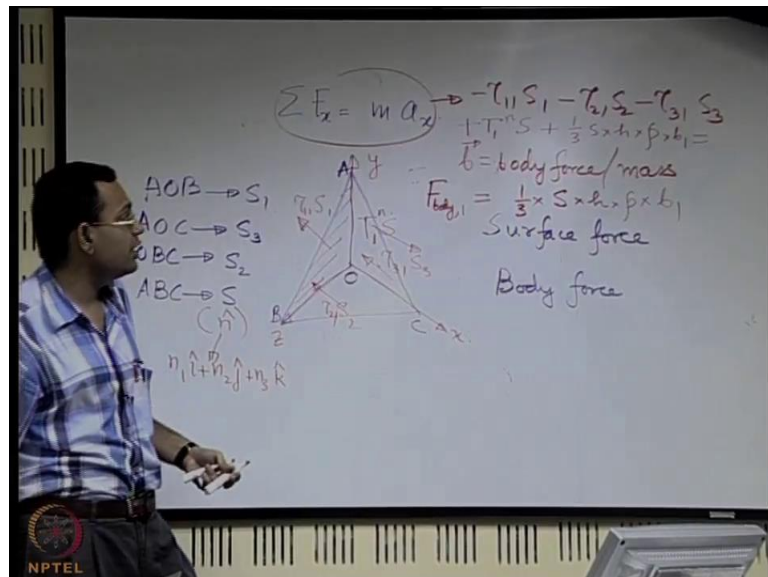 Σ F_x = m a_x → -τ_11 S_1 - τ_21 S_2 - τ_31 S_3
+ T_1^n S + 1/3 S×h×ρ×b_1 =
b⃗ = body force/mass
F_body,1 = 1/3 × S × h × ρ × b_1
Surface force
Body force
AOB → S_1
AOC → S_3
OBC → S_2
ABC → S
(n̂)
n_1 î + n_2 ĵ + n_3 k̂
A y
T_1^n S
τ_31 S_3
O
B
Z
C
x
NPTEL